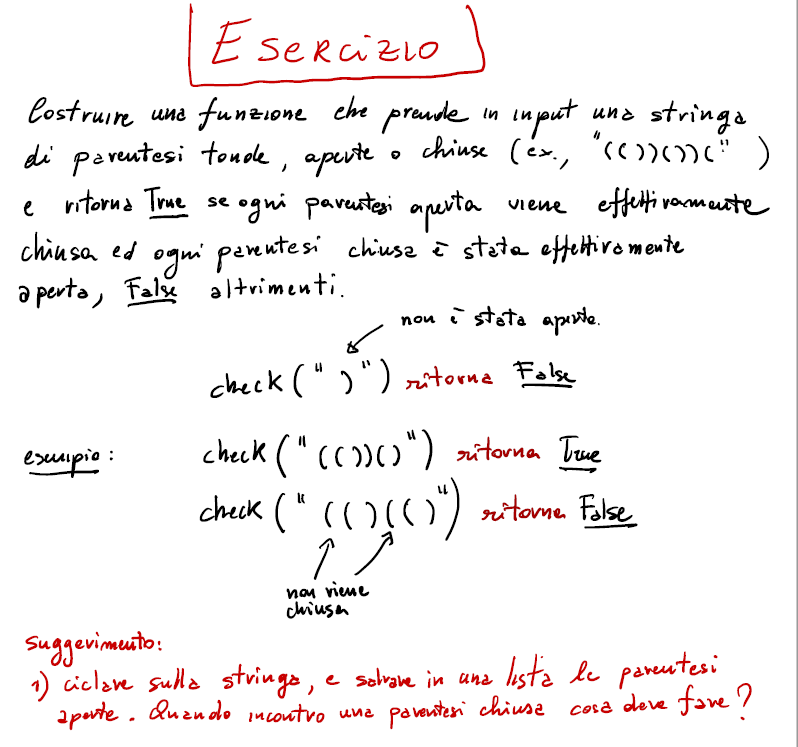 Esercizio
Costruire una funzione che prende in input una stringa
di parentesi tonde, aperte o chiuse (ex., "(())())(" )
e ritorna True se ogni parentesi aperta viene effettivamente
chiusa ed ogni parentesi chiusa è stata effettivamente
aperta, False altrimenti.
non è stata aperta.
check(")") ritorna False
esempio: check("(())()") ritorna True
check("(()(()") ritorna False
non viene
chiusa
Suggerimento:
1) ciclare sulla stringa, e salvare in una lista le parentesi
aperte. Quando incontro una parentesi chiusa cosa devo fare?